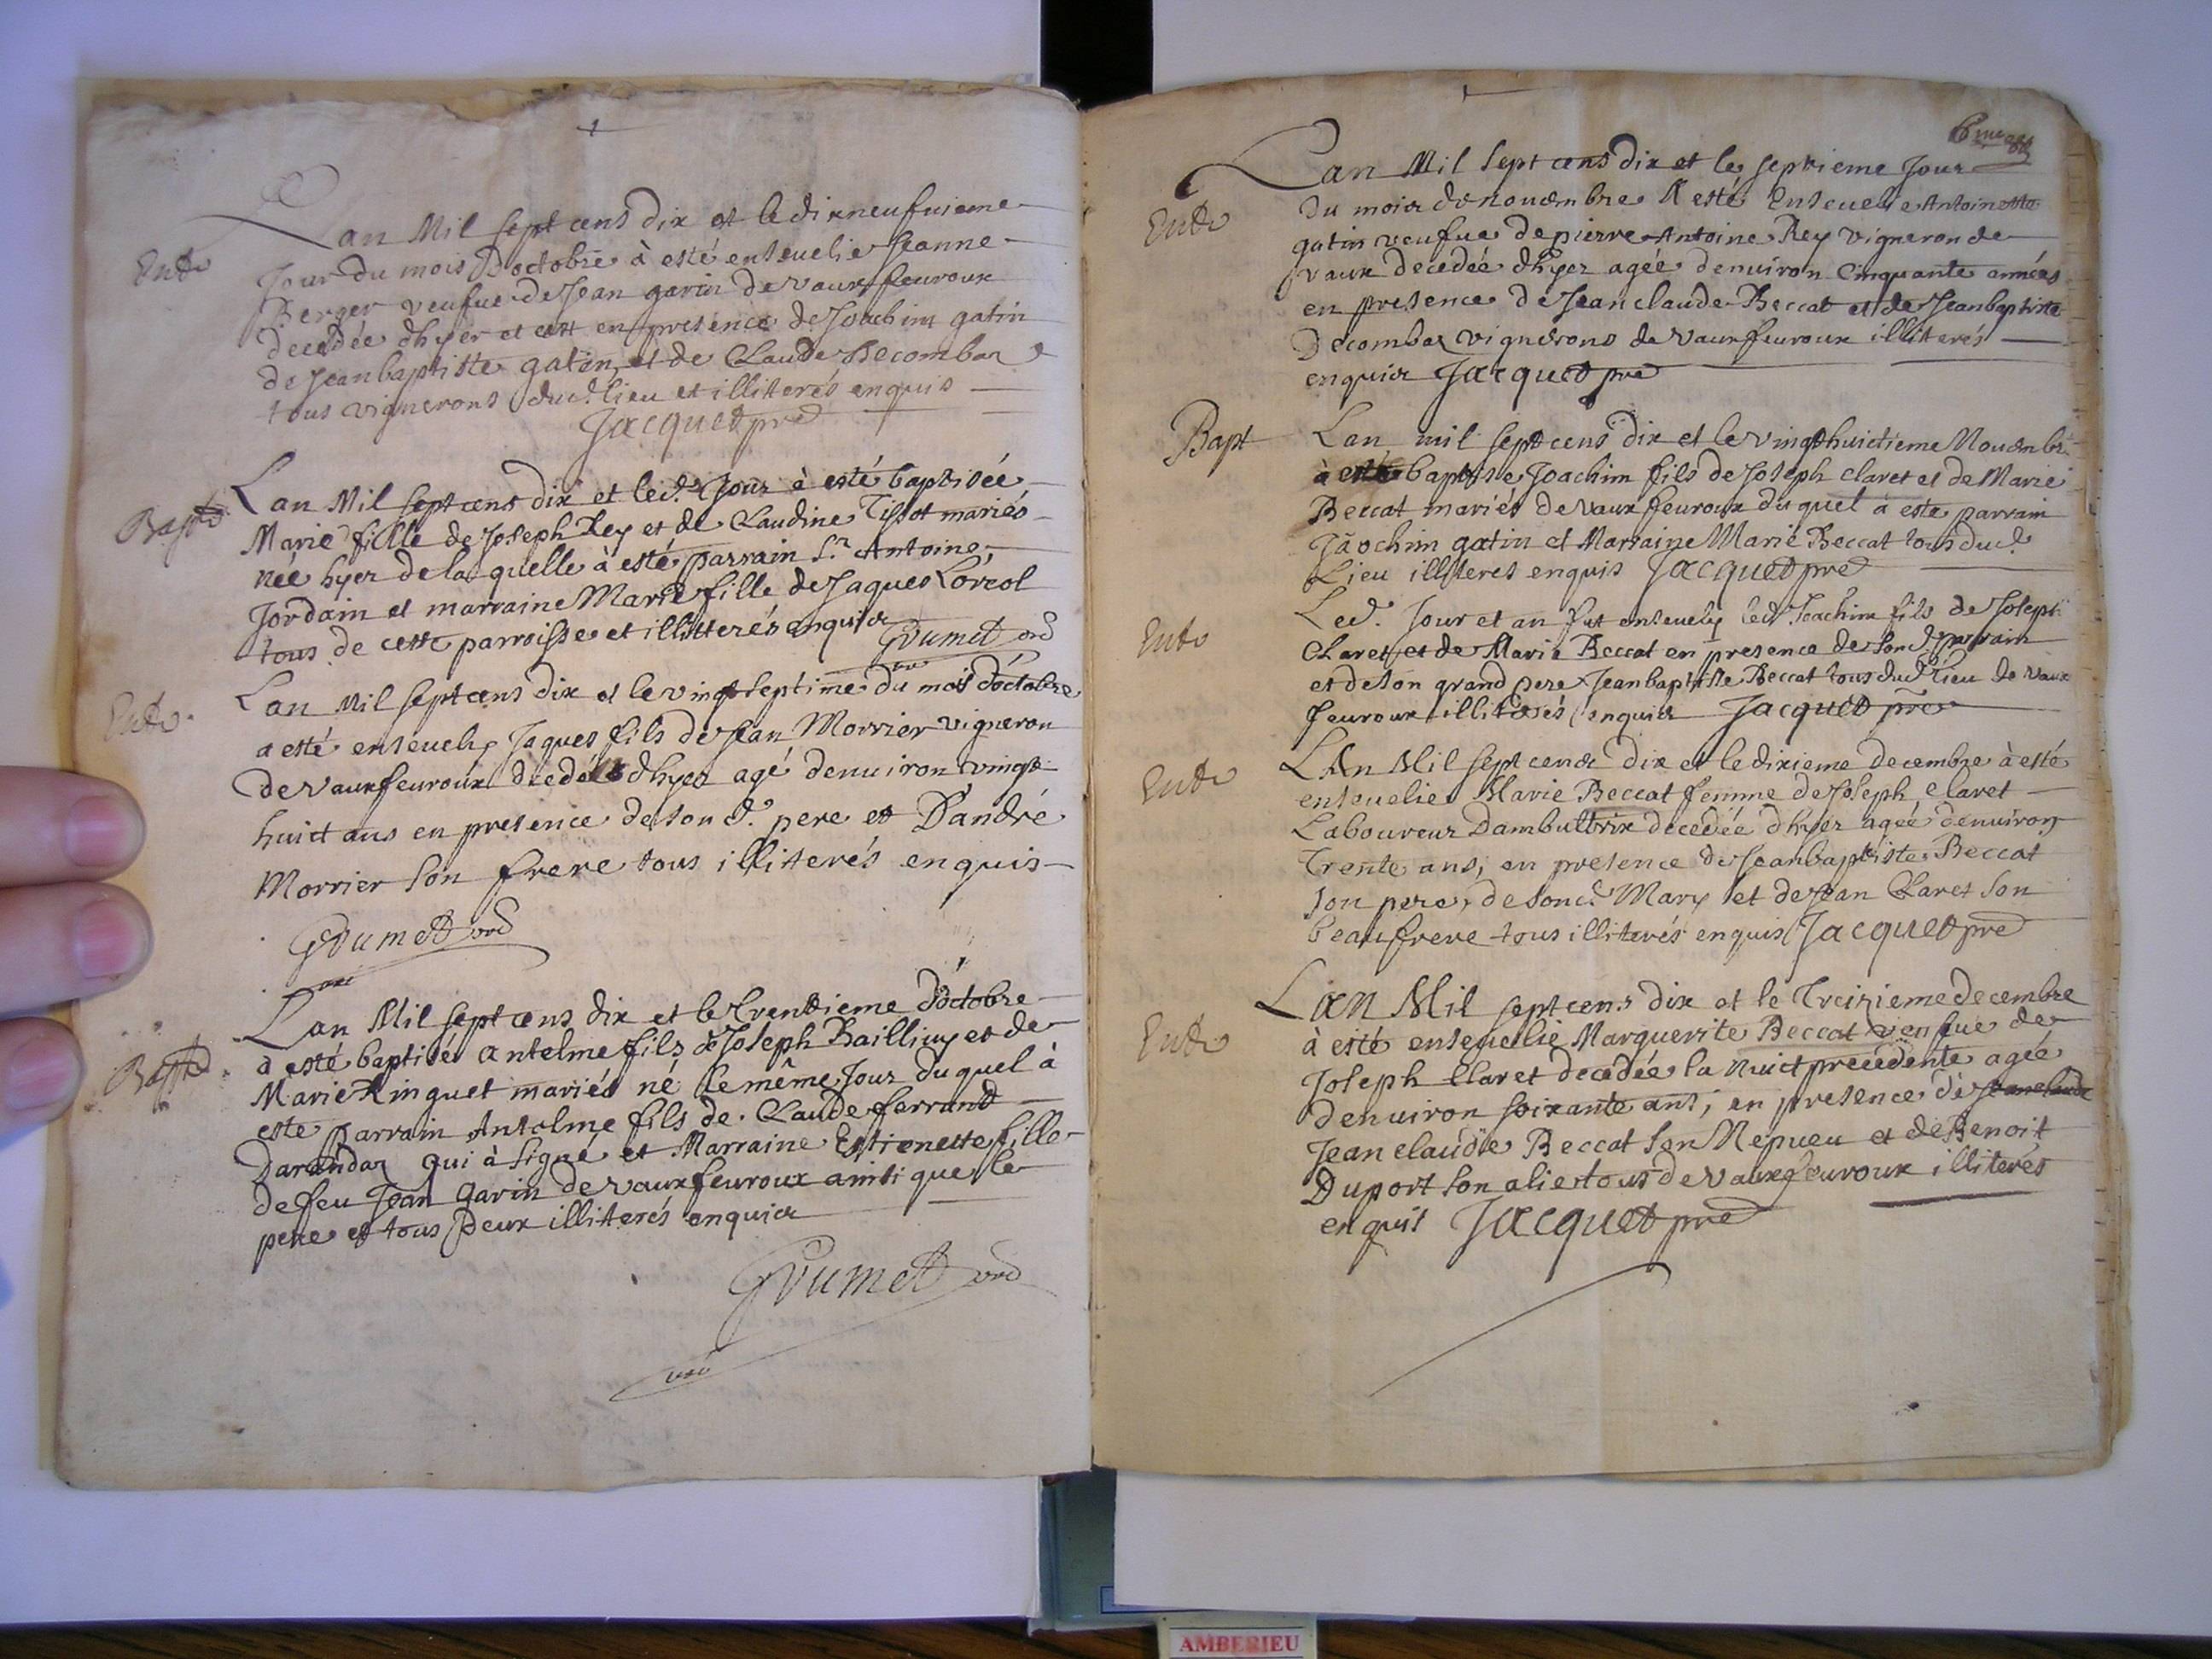 Lan Mil sept cens dix et le dixneufuieme
Ente Jour du mois D'octobre à esté enseuelie Jeanne
Berger veufue de Jean garin de vaux feuroux
decedée dhyer et cest en presence de Joachim gatin
de Jeanbaptiste gatin, et de Claude Decombaz
tous vignerons dud. lieu et illitterés enquis
Jacquet pre
Lan Mil sept cens dix et led. Jour à esté baptisée
Bapte Marie fille de Joseph Rey et de Claudine Tissot mariés
née hyer de la quelle à esté parrain Sr Antoine
Jordain et marraine Marie fille de Jaques Loreol
tous de cette parroisse et illitterés enquis
Gumet
Lan Mil sept cens dix et le vingtseptime du mois d'octobre
Ente a esté enseuely Jaques fils de Jean Morrier vigneron
de vaux feuroux decedé dhyer agé denuiron vingt
huict ans en presence de son d. pere et D'andré
Morrier son frere tous illitterés enquis
Gumet
Lan Mil sept cens dix et le trentieme d'octobre
a esté baptisé antelme fils de Joseph Bailliuy et de
Bapt Marie Ringuet mariés né le même Jour du quel à
este parrain Antelme fils de Claude ferrand
Darandaz qui à signé et Marraine Estienette fille
de feu Jean garin de vaux feuroux ainsi que le
pere et tous Deux illitterés enquis
Gumet
6me
Lan Mil sept cens dix et le septieme Jour
Ente du mois de nouembre A esté Enseuelie Antoinette
gatin veufue de pierre Antoine Rey vigneron de
vaux decedée dhyer agée denuiron Cinquante années
en presence de Jean claude Beccat et de Jeanbaptiste
Decombaz vignerons de vaux feuroux illiterés
enquis Jacquet pre
Bapt Lan mil sept cens dix et le vingthuictieme Nouembre
à esté baptisé Joachim fils de Joseph claret et de Marie
Beccat mariés de vaux feuroux du quel à este parrain
Jäochim gatin et Marraine Marie Beccat tous dud.
Lieu illiteres enquis Jacquet pre
Ente Led. Jour et an fut enseuely led. Joachim fils de Joseph
Claret et de Marie Beccat en presence de son d. parrain
et de son grand pere Jeanbaptiste Beccat tous dud. lieu de vaux
feuroux illiterés enquis Jacquet pre
Ente LAn Mil sept cens dix et le dixieme decembre à esté
enseuelie Marie Beccat femme de Joseph Claret
Laboureur Dambuttrix decedée dhyer agée denuiron
Trente ans, en presence de Jeanbaptiste Beccat
son pere, de sond. Mary et de Jean Claret son
beaufrere tous illiterés enquis Jacquet pre
LAn Mil sept cens dix et le Treizieme decembre
Ente à esté enseuelie Marguerite Beccat veufue de
Joseph Claret decedée la nuict precedente agée
denuiron soixante ans, en presence de Jeanclaude
Jean claude Beccat son Nepueu et de Benoit
Duport son alie tous de vaux feuroux illiterés
enquis Jacquet pre
AMBERIEU